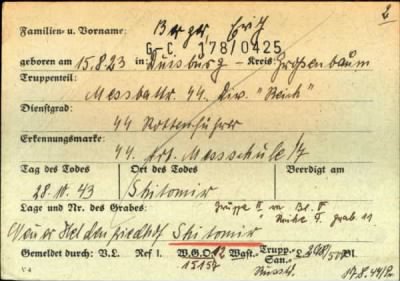 2
Familien- u. Vorname: Berger, Erich
G-C 178/0425
geboren am 15.8.23 in Duisburg - Kreis: Großenbaum
Truppenteil:
Messbattr. 44. Div. "Reich"
Dienstgrad:
44 Rottenführer
Erkennungsmarke:
44. Art. Messschule/7
Tag des Todes Ort des Todes Beerdigt am
28. 43 Shitomir
Lage und Nr. des Grabes: Gruppe Bl.
Reihe Grab 11
Neuer Heldenfriedhof Shitomir
Gemeldet durch: V.L. Ref I. W.G.O. 12 Wast. Trupp.
San.
15157
V 4 17.8.44